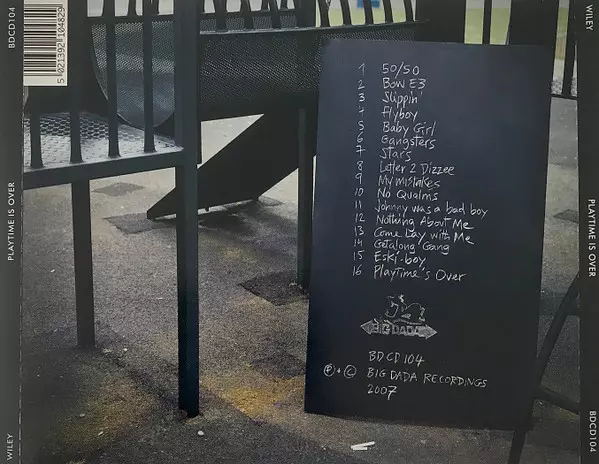 BDCD104
5 021392 104829
WILEY
PLAYTIME IS OVER
WILEY
PLAYTIME IS OVER
BDCD104
1 50/50
2 Bow E3
3 Slippin'
4 Flyboy
5 Baby Girl
6 Gangsters
7 Stars
8 Letter 2 Dizzee
9 My mistakes
10 No Qualms
11 Johnny was a bad boy
12 Nothing About Me
13 Come Lay with Me
14 Getalong Gang
15 Eski-boy
16 Playtime's Over
BIG DADA
BDCD 104
℗ + © BIG DADA RECORDINGS
2007